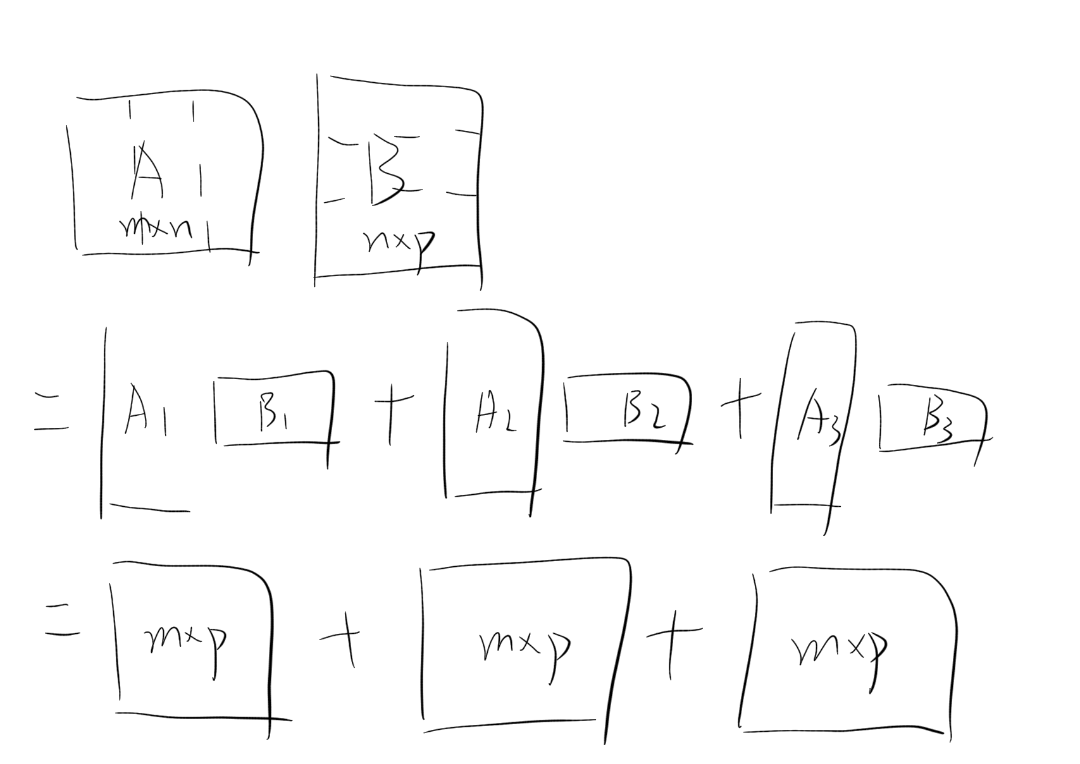 A B
m×n n×p
= A₁ B₁ + A₂ B₂ + A₃ B₃
= m×p + m×p + m×p